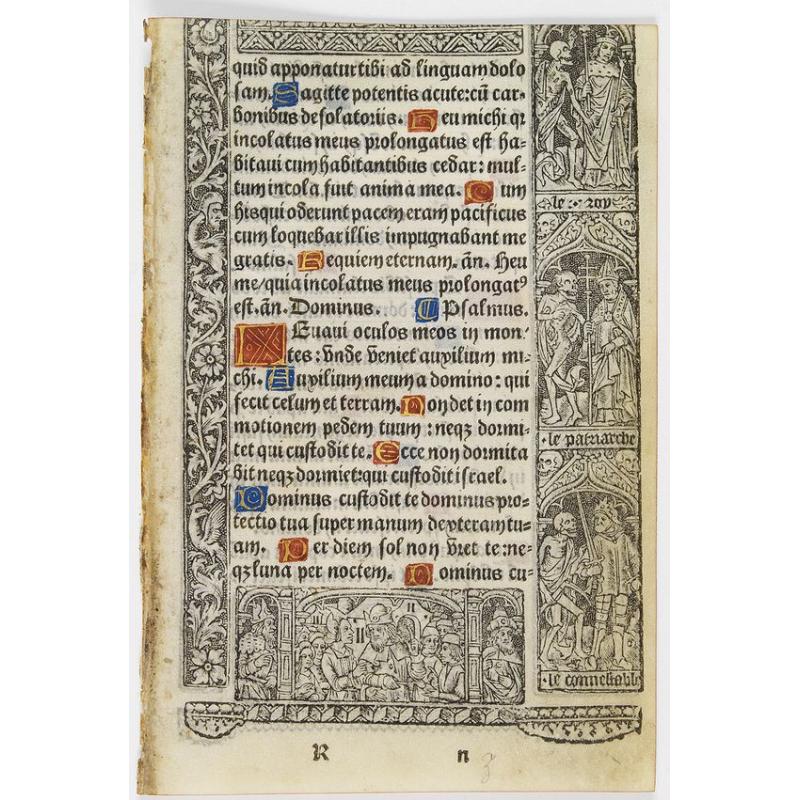 quid apponatur tibi ad linguam dolo
sam. Sagitte potentis acute: cū car-
bonibus desolatoriis. Heu michi qꝛ
incolatus meus prolongatus est ha-
bitaui cum habitantibus cedar: mul-
tum incola fuit anima mea. Cum
his qui oderunt pacem eram pacificus
cum loquebar illis impugnabant me
gratis. Requiem eternam. añ. Heu
me/quia incolatus meus prolongatꝰ
est. añ. Dominus. Psalmus.
Leuaui oculos meos in mon-
tes: vnde veniet auxilium mi-
chi. Auxilium meum a domino: qui
fecit celum et terram. Non det in com
motionem pedem tuum: neqꝫ dormi-
tet qui custodit te. Ecce non dormita
bit neqꝫ dormiet: qui custodit israel.
Dominus custodit te dominus pro-
tectio tua super manum dexteram tu-
am. Per diem sol non vret te: ne-
qꝫ luna per noctem. Dominus cu-
le roy
le patriarche
le connestabl
R n